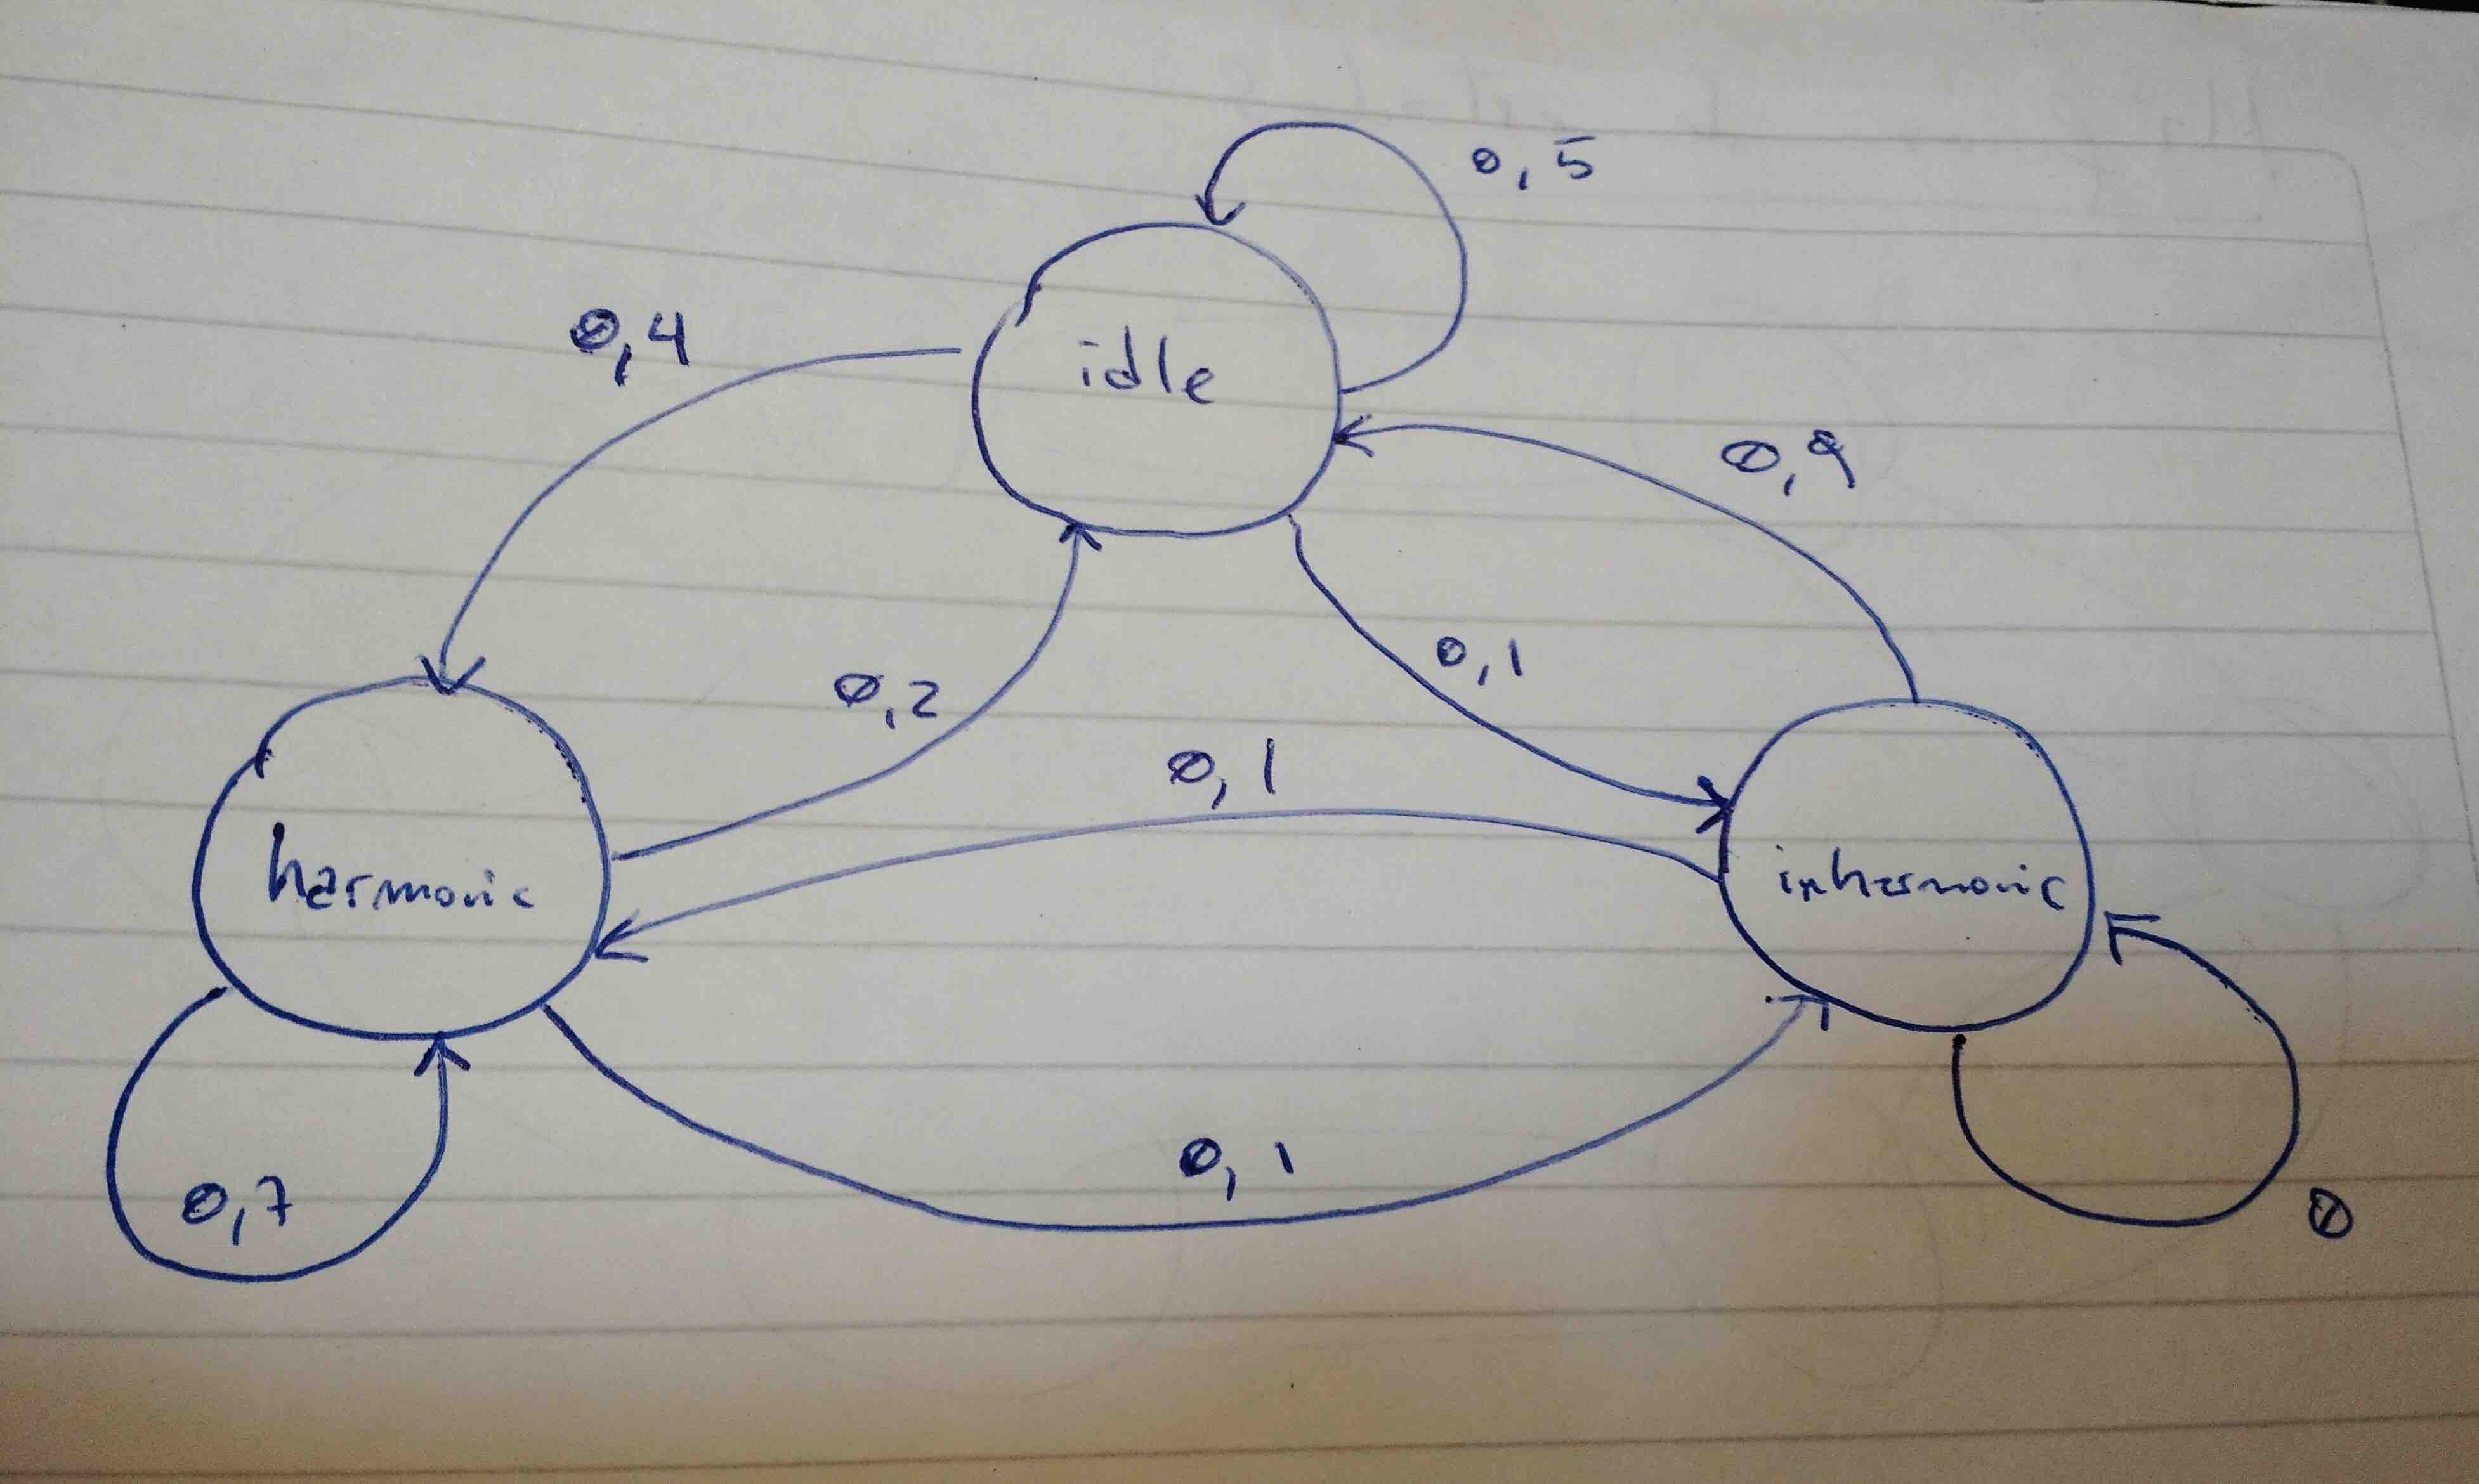 0,5
0,4
idle
0,9
0,2
0,1
0,1
harmonic
inharmonic
0,1
0,7
0